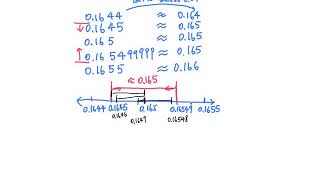 0.1644 ≈ 0.164
0.1645 ≈ 0.165
0.165 ≈ 0.165
0.165499999 ≈ 0.165
0.1655 ≈ 0.166
≈ 0.165
0.1644 0.1645 0.165 0.16549 0.1655
0.1646 0.1649 0.16548